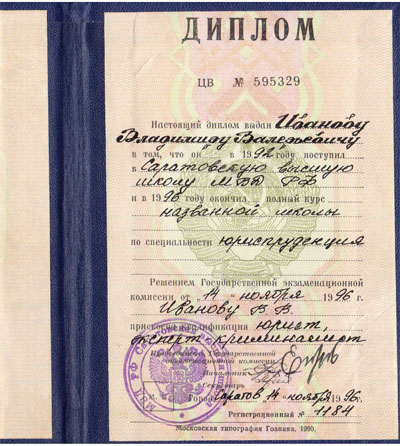 ДИПЛОМ
ЦВ № 595329
Настоящий диплом выдан Иванову
Владимиру Валерьевичу
в том, что он в 1992 году поступил
в Саратовскую высшую
школу МВД РФ
и в 1996 году окончил полный курс
названной школы
по специальности юриспруденция
Решением Государственной экзаменационной
комиссии от „14" ноября 1996 г.
Иванову В. В.
присвоена квалификация юрист,
эксперт криминалист
Председатель Государственной
экзаменационной комиссии
Начальник
Город Саратов 14 ноября 1996
Регистрационный № 1184
Московская типография Гознака, 1990.
МВД РФ САРАТОВСКАЯ ВЫСШАЯ ШКОЛА